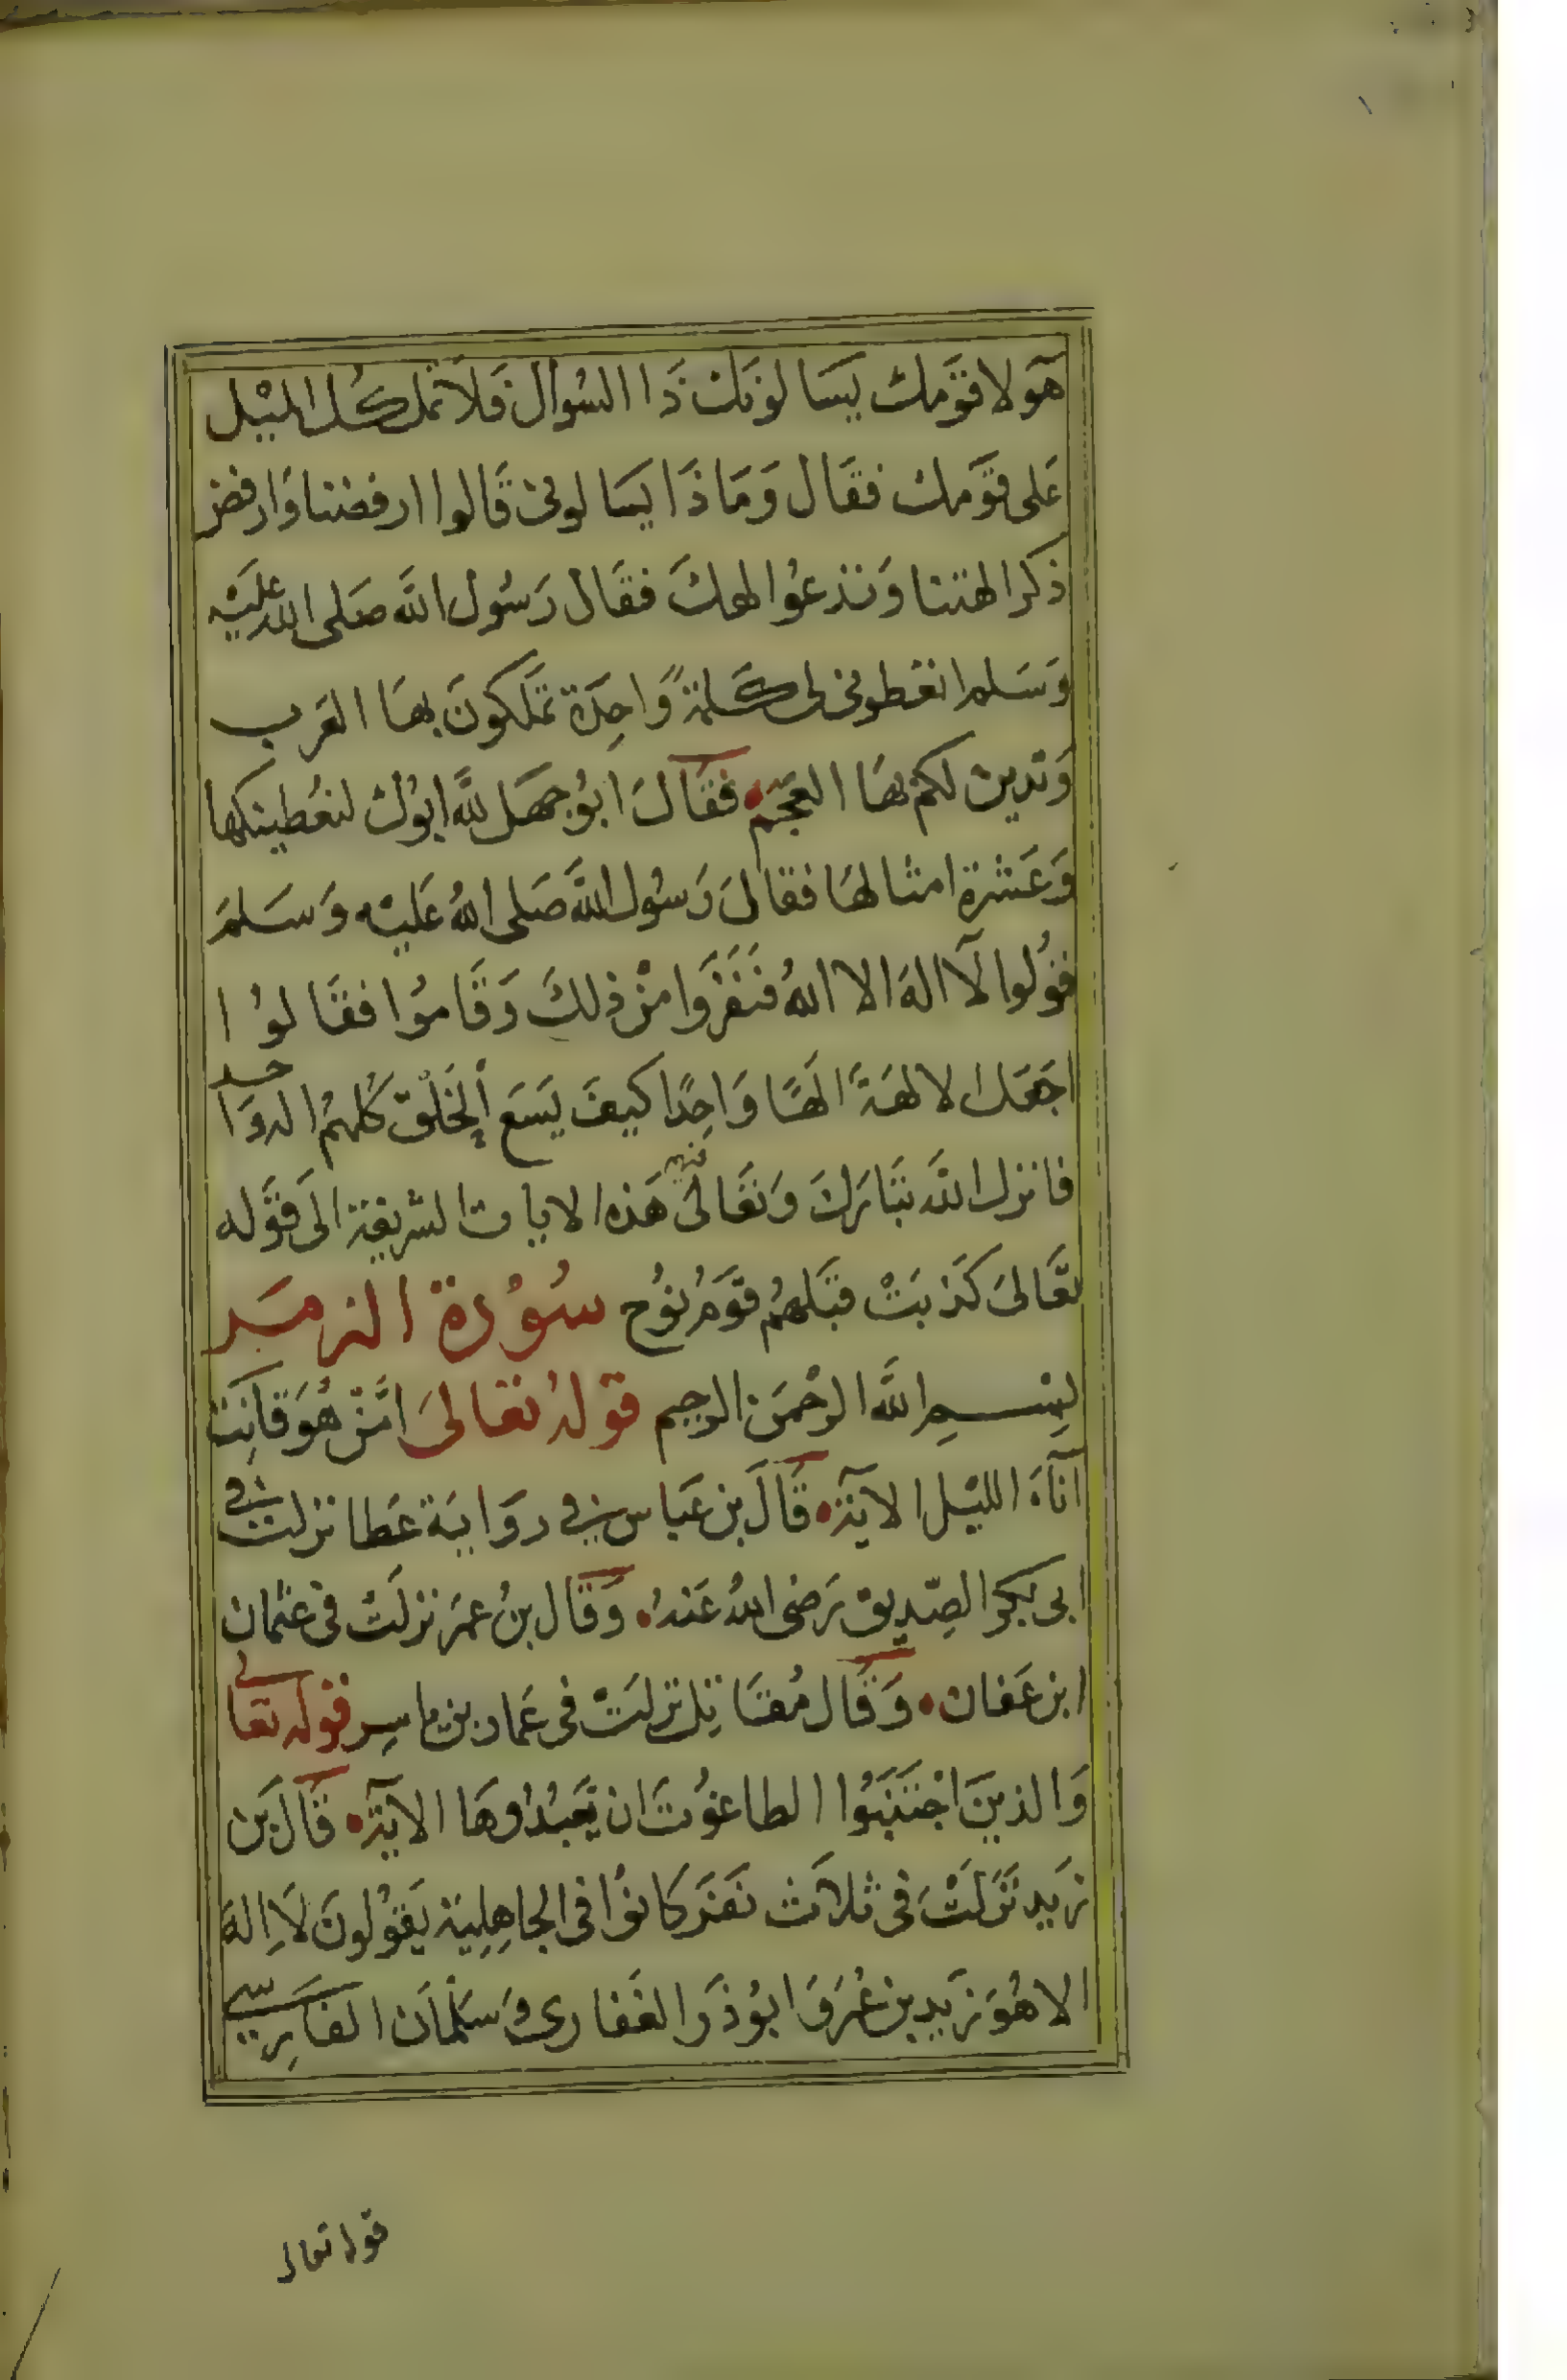 هَولا قَومك يَسَالونك ذَا السُوال فَلا تمل كُل الميْل
عَلى قَومك فقَال وَمَا ذَا يسَالونى قَالوا ارفضنا وَارفض
ذكر الهتنا وَنذعُوا لهك فقَال رَسُول اللَّه صَلى الله عَليَه
وَسَلم اتعطونى لى كَلمَةً وَاحِدَة تمَلكونَ بهَا العَرب
وَتدين لكم بهَا العَجَم فقَالَ ابُو جهَل للَّه ابوُك لنعُطينكها
وَعَشرة امثالهَا فقالَ رَسُول اللَّه صَلى اللهُ عَليْه وَسَلمَ
فقُولوا لآ الهَ الا اللهُ فنَفَرَوا منْ ذلكَ وَقَامُوا فقَالوُا
اجَعَل الالهَةَ الَهًا وَاحِدًا كيفَ يَسَع الخَلْق كُلهمُ اله وَاحد
فانزل اللَّه تبَارَكَ وَتعَالىَ فيهم هَذه الايات الشريفة الىَ قوَله
تعَالىَ كَذبَتْ قبَلهمُ قوَمُ نوُح سُوُرة الزمَر
بِسْمِ اللَّه الرحْمَن الرحيم قوله تعَالىَ امَّنْ هُوَ قانِت
آنَاءَ الليْل الايَة قَالَ بن عَباس فى روَايَة عَطا نزلت فى
ابى بَكر الصِّدِيق رَضى اللهُ عَنهُ وَقَال بنُ عمَر نزلَتْ فى عثمان
ابن عَفان وَقَال مُقَاتِل نزلَتْ فى عَمار بن ياسِر قوله تعَالى
وَالذينَ اجْتَنَبُوا الطاغوُتَ ان يَعَبُدُوهَا الايَة قَال بَن
زَيد نَزَلَتْ فى ثلاَث نَفَر كَانوُا فى الجاهِلِية يَقوُلونَ لاَ اِلهَ
الا هُوَ زَيد بن عُمَرو ابُو ذَر الغَفارى وَسَلمَان الفَارِسِى
قوله تعالى